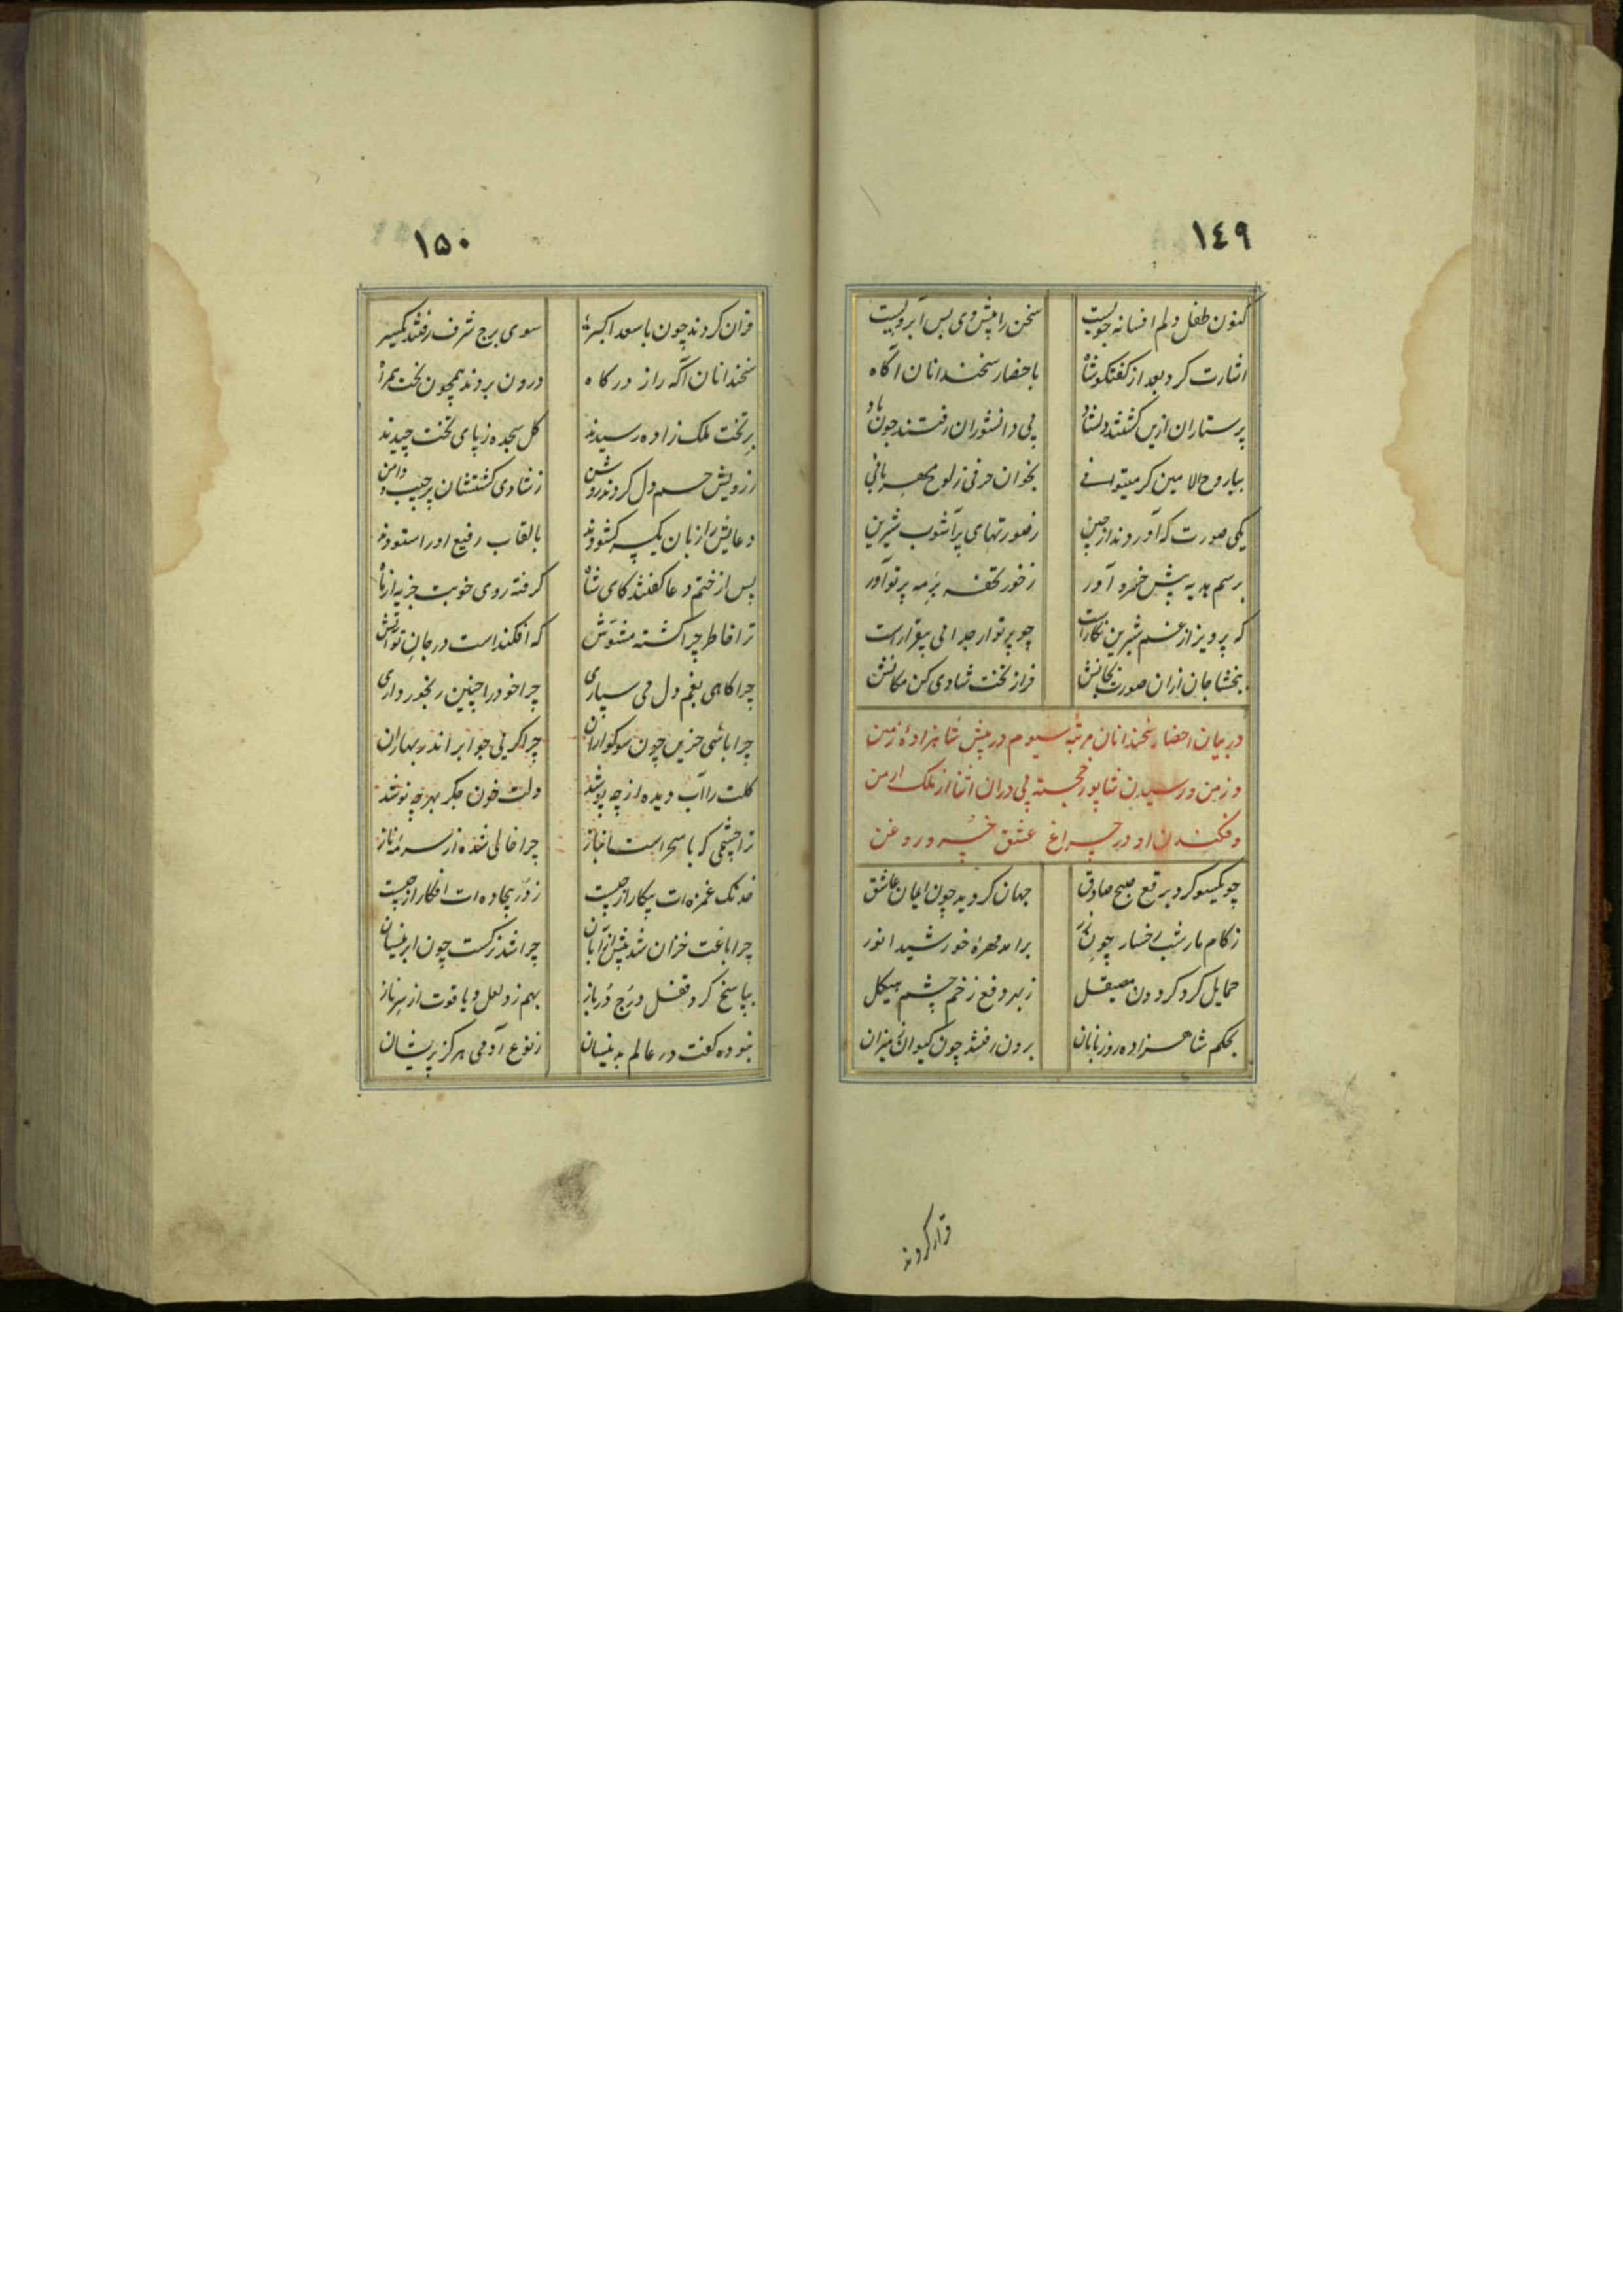 ١٤٩
کنون طفل دلم افسانه جویست سخن را پیش وی بس آبرویست
اشارت کرد بعد از گفتگو شاه باحضار سخندانان آگاه
پرستاران ازین گشتند دلشاد پی دانشوران رفتند چون باد
بیا روح الامین گر میتوانی بخوان حرفی ز لوح مهربانی
یکی صورت که آوردند از چین ز صورتهای پرآشوب شیرین
برسم هدیه پیش خسرو آور ز خور تحفه بر مه پرتو آور
که پرویز از غم شیرین نگارست چو پرتو از جدائی بیقرارست
ببخشا جان ازان صورت بجانش فراز تخت شادی کن مکانش
در بیان احضار سخندانان مرتبهٔ سیوم در پیش شاهزادهٔ زمین
و زمن و رسیدن شاپور خجسته پی دران اثنا از ملک ارمن
و فکندن او در چراغ عشق خسرو روغن
چو یکسو کرد برقع صبح صادق جهان گردید چون ایمان عاشق
ز کام مار شب رخسار چون برامد مهرهٔ خورشید انور
حمایل کرد گردون مصیقل ز بهر دفع زخم چشم هیکل
بحکم شاهزاده روزبانان برون رفتند چون کیوان ز میزان
قران کردند
١٥٠
قران کردند چون با سعد اکبر سوی برج شرف رفتند یکسر
سخندانان آگه راز درگاه درون بردند همچون بخت همراه
بر تخت ملک زاده رسیدند گل سجده ز پای تخت چیدند
ز رویش چشم دل کردند روشن ز شادی گشتشان پر جیب و دامن
دعایش را زبان یکسر گشودند بالقاب رفیع او را ستودند
پس از ختم دعا گفتند کای شاه گرفته روی خوبت جزیه از ماه
ترا خاطر چرا گشته مشوش که افکنداست در جان تو آتش
چرا کاهی بغم دل می سپاری چرا خود را چنین رنجور داری
چرا باشی حزین چون سوگواران چرا گریی چو ابر اندر بهاران
گلت را آب دیده از چه پوشد دلت خون جگر بهر چه نوشد
ترا چشمی که با سحر است انباز چرا خالی شده از سرمهٔ ناز
خدنگ غمزه ات بیکار از چیست ز در بیجاده ات افکار از چیست
چرا باغت خزان شد پیش از آبان چرا شد نرگست چون ابر نیسان
بپاسخ کرد قفل درج در باز بهم زد لعل و یاقوت از سر ناز
نبوده گفت در عالم بدینسان ز نوع آدمی هرگز پریشان